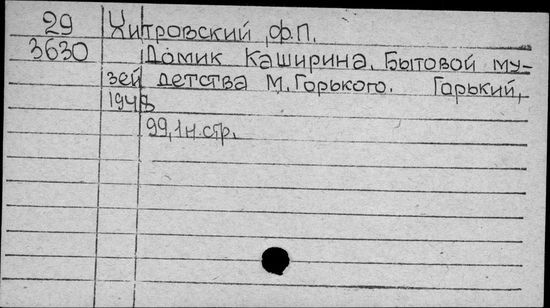 29 Хитровский Ф.П.
3630 Домик Каширина. Бытовой му-
зей детства М. Горького. Горький,
1948
99, 1 н. стр.